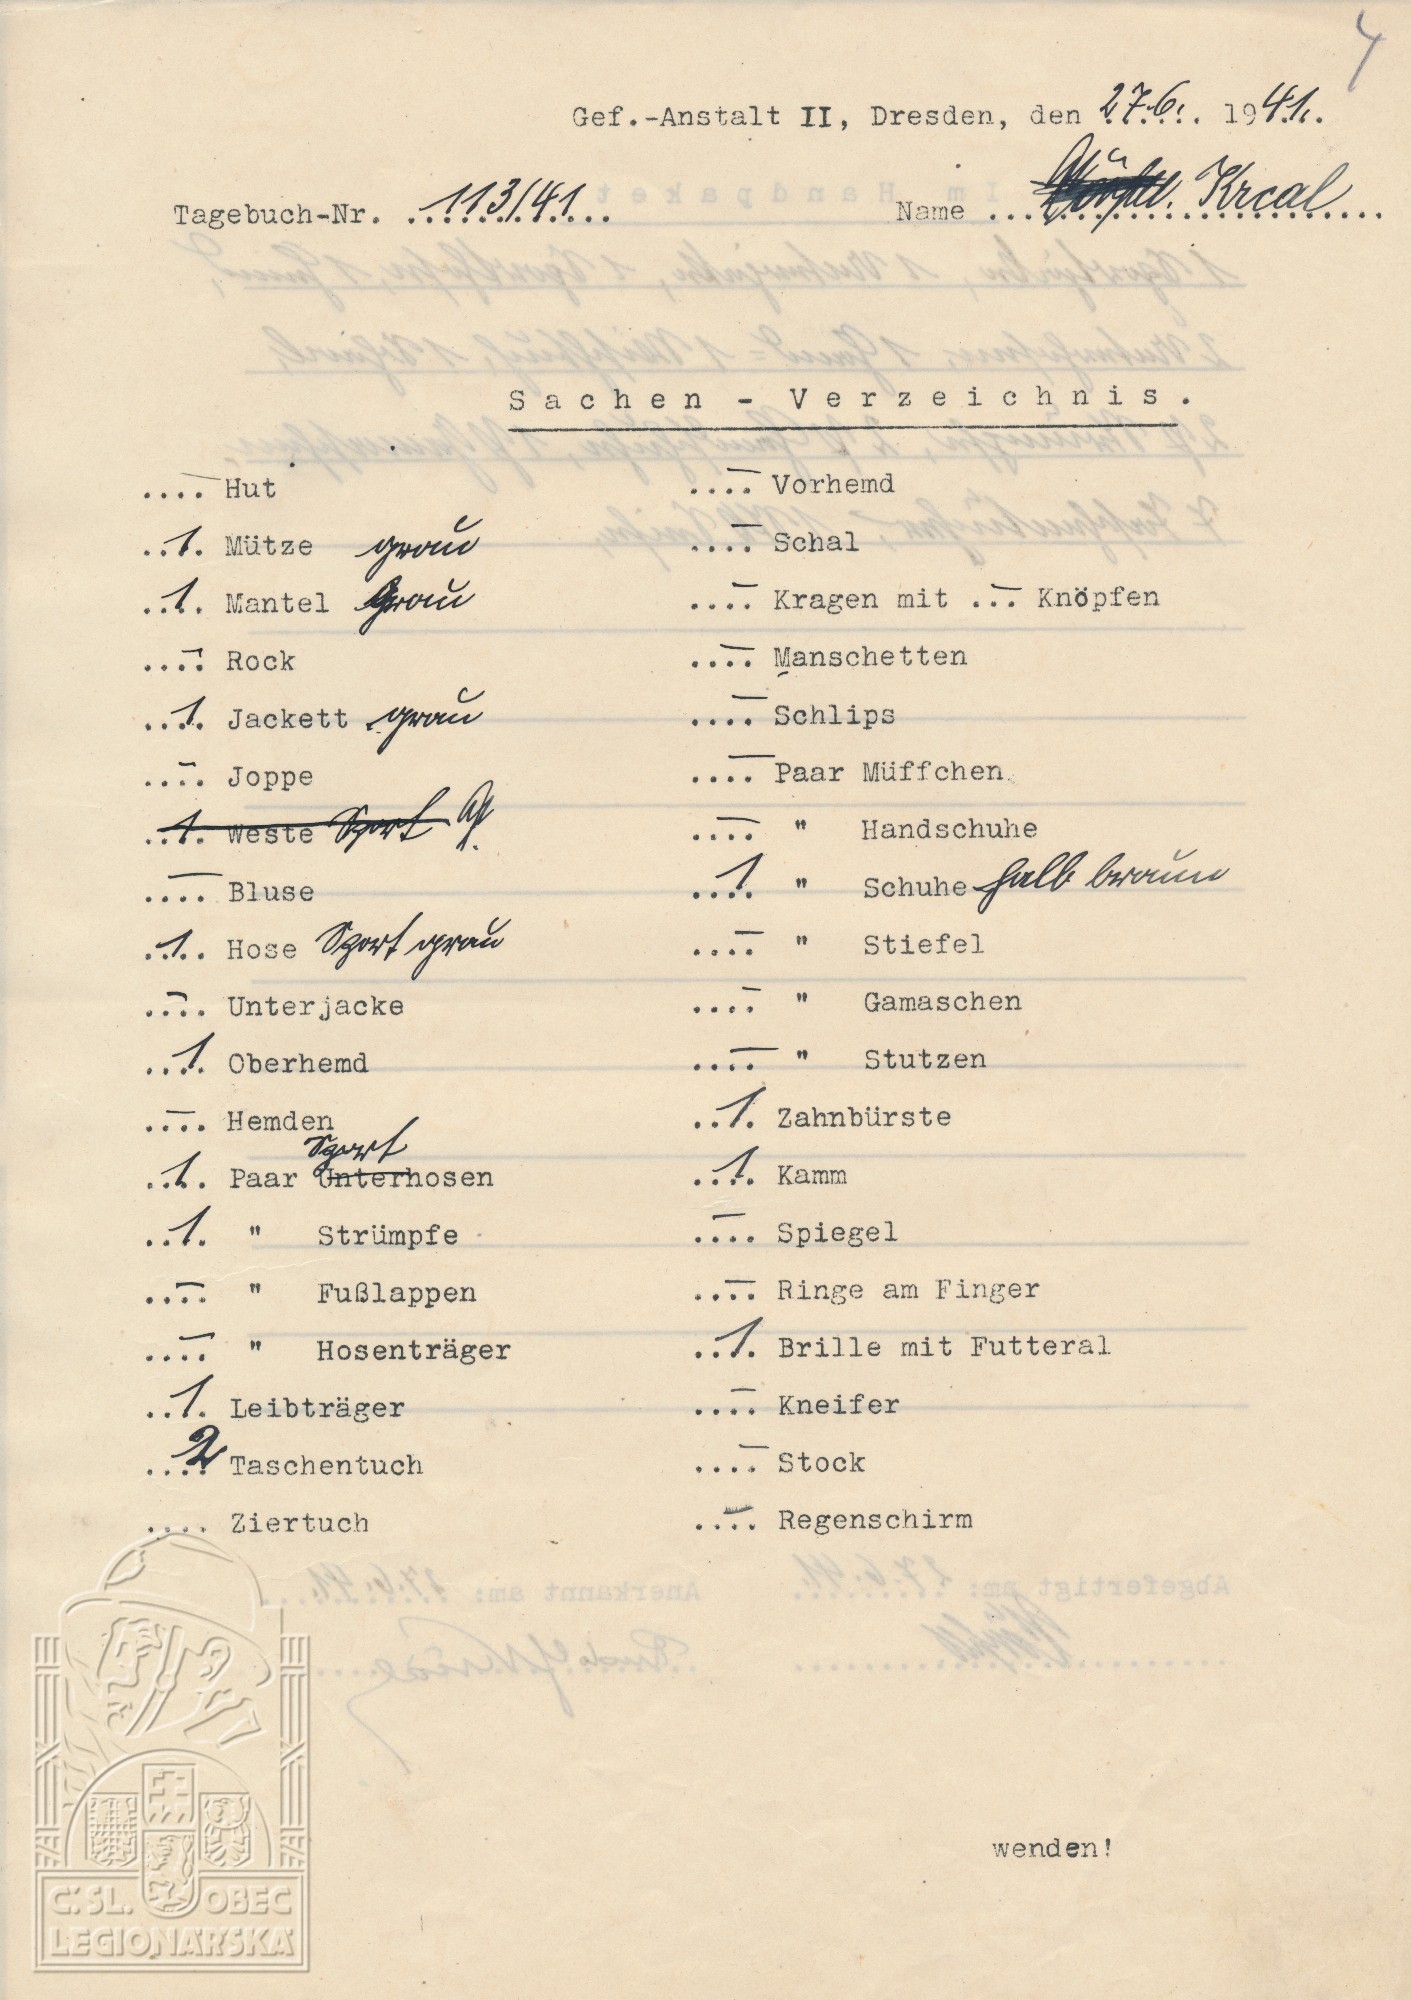 4
Gef.-Anstalt II, Dresden, den 27.6. 1941.
Tagebuch-Nr. 113/41 Name Krcal
Sachen - Verzeichnis.
.... Hut
1 Mütze grau
1 Mantel Grau
.... Rock
1 Jackett grau
.... Joppe
1 Weste Sport
.... Bluse
1 Hose Sport grau
.... Unterjacke
1 Oberhemd
.... Hemden
Sport
1 Paar Unterhosen
1 " Strümpfe
.... " Fußlappen
.... " Hosenträger
1 Leibträger
2 Taschentuch
.... Ziertuch
.... Vorhemd
.... Schal
.... Kragen mit ... Knöpfen
.... Manschetten
.... Schlips
.... Paar Müffchen
.... " Handschuhe
1 " Schuhe halb braun
.... " Stiefel
.... " Gamaschen
.... " Stutzen
1 Zahnbürste
1 Kamm
.... Spiegel
.... Ringe am Finger
1 Brille mit Futteral
.... Kneifer
.... Stock
.... Regenschirm
wenden!
Č.SL. OBEC
LEGIONÁŘSKÁ